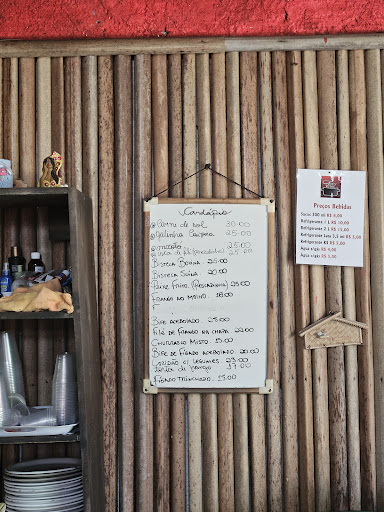 Cardápio
Carne de sol 30.00
Galinha Caipira 25.00
25.00
25.00
Bisteca Boина 25.00
Bisteca Suína 20.00
Peixe frito (Pescadinha)
Frango ao molho 18.00
Bife acebolado 25.00
Filé de frango na chapa 22.00
Churrasco misto 15.00
Bife de fígado acebolado 20.00
Cozidão c/ legumes 23.00
17.00
Fígado Trinchado 15.00
Preços Bebidas
Sucos 300 ml R$ 4,00
Refrigerante 1 L R$ 10,00
Refrigerante 2 L R$ 13,00
Refrigerante Lata 3,5 ml R$ 5,00
Refrigerante KS R$ 5,00
Água s/gás R$ 4,00
Água c/gás R$ 5,00